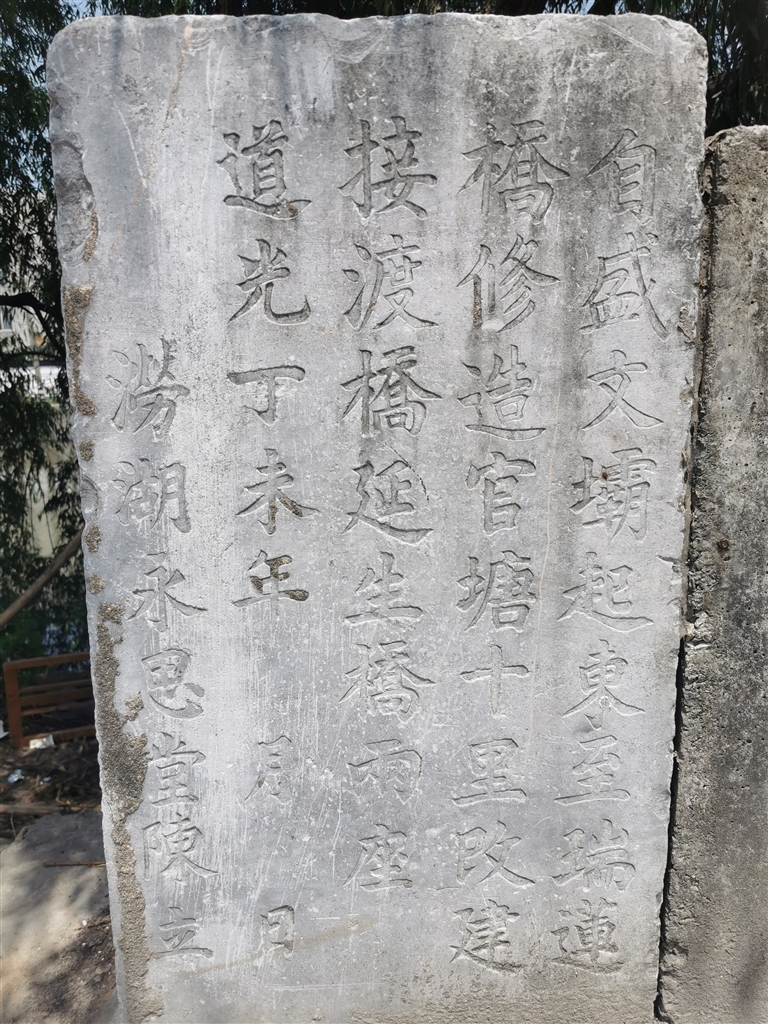 自盛文壩起東至瑞蓮
橋修造官塘十里改建
接渡橋延生橋兩座
道光丁未年 月 日
澇湖永思堂陳立